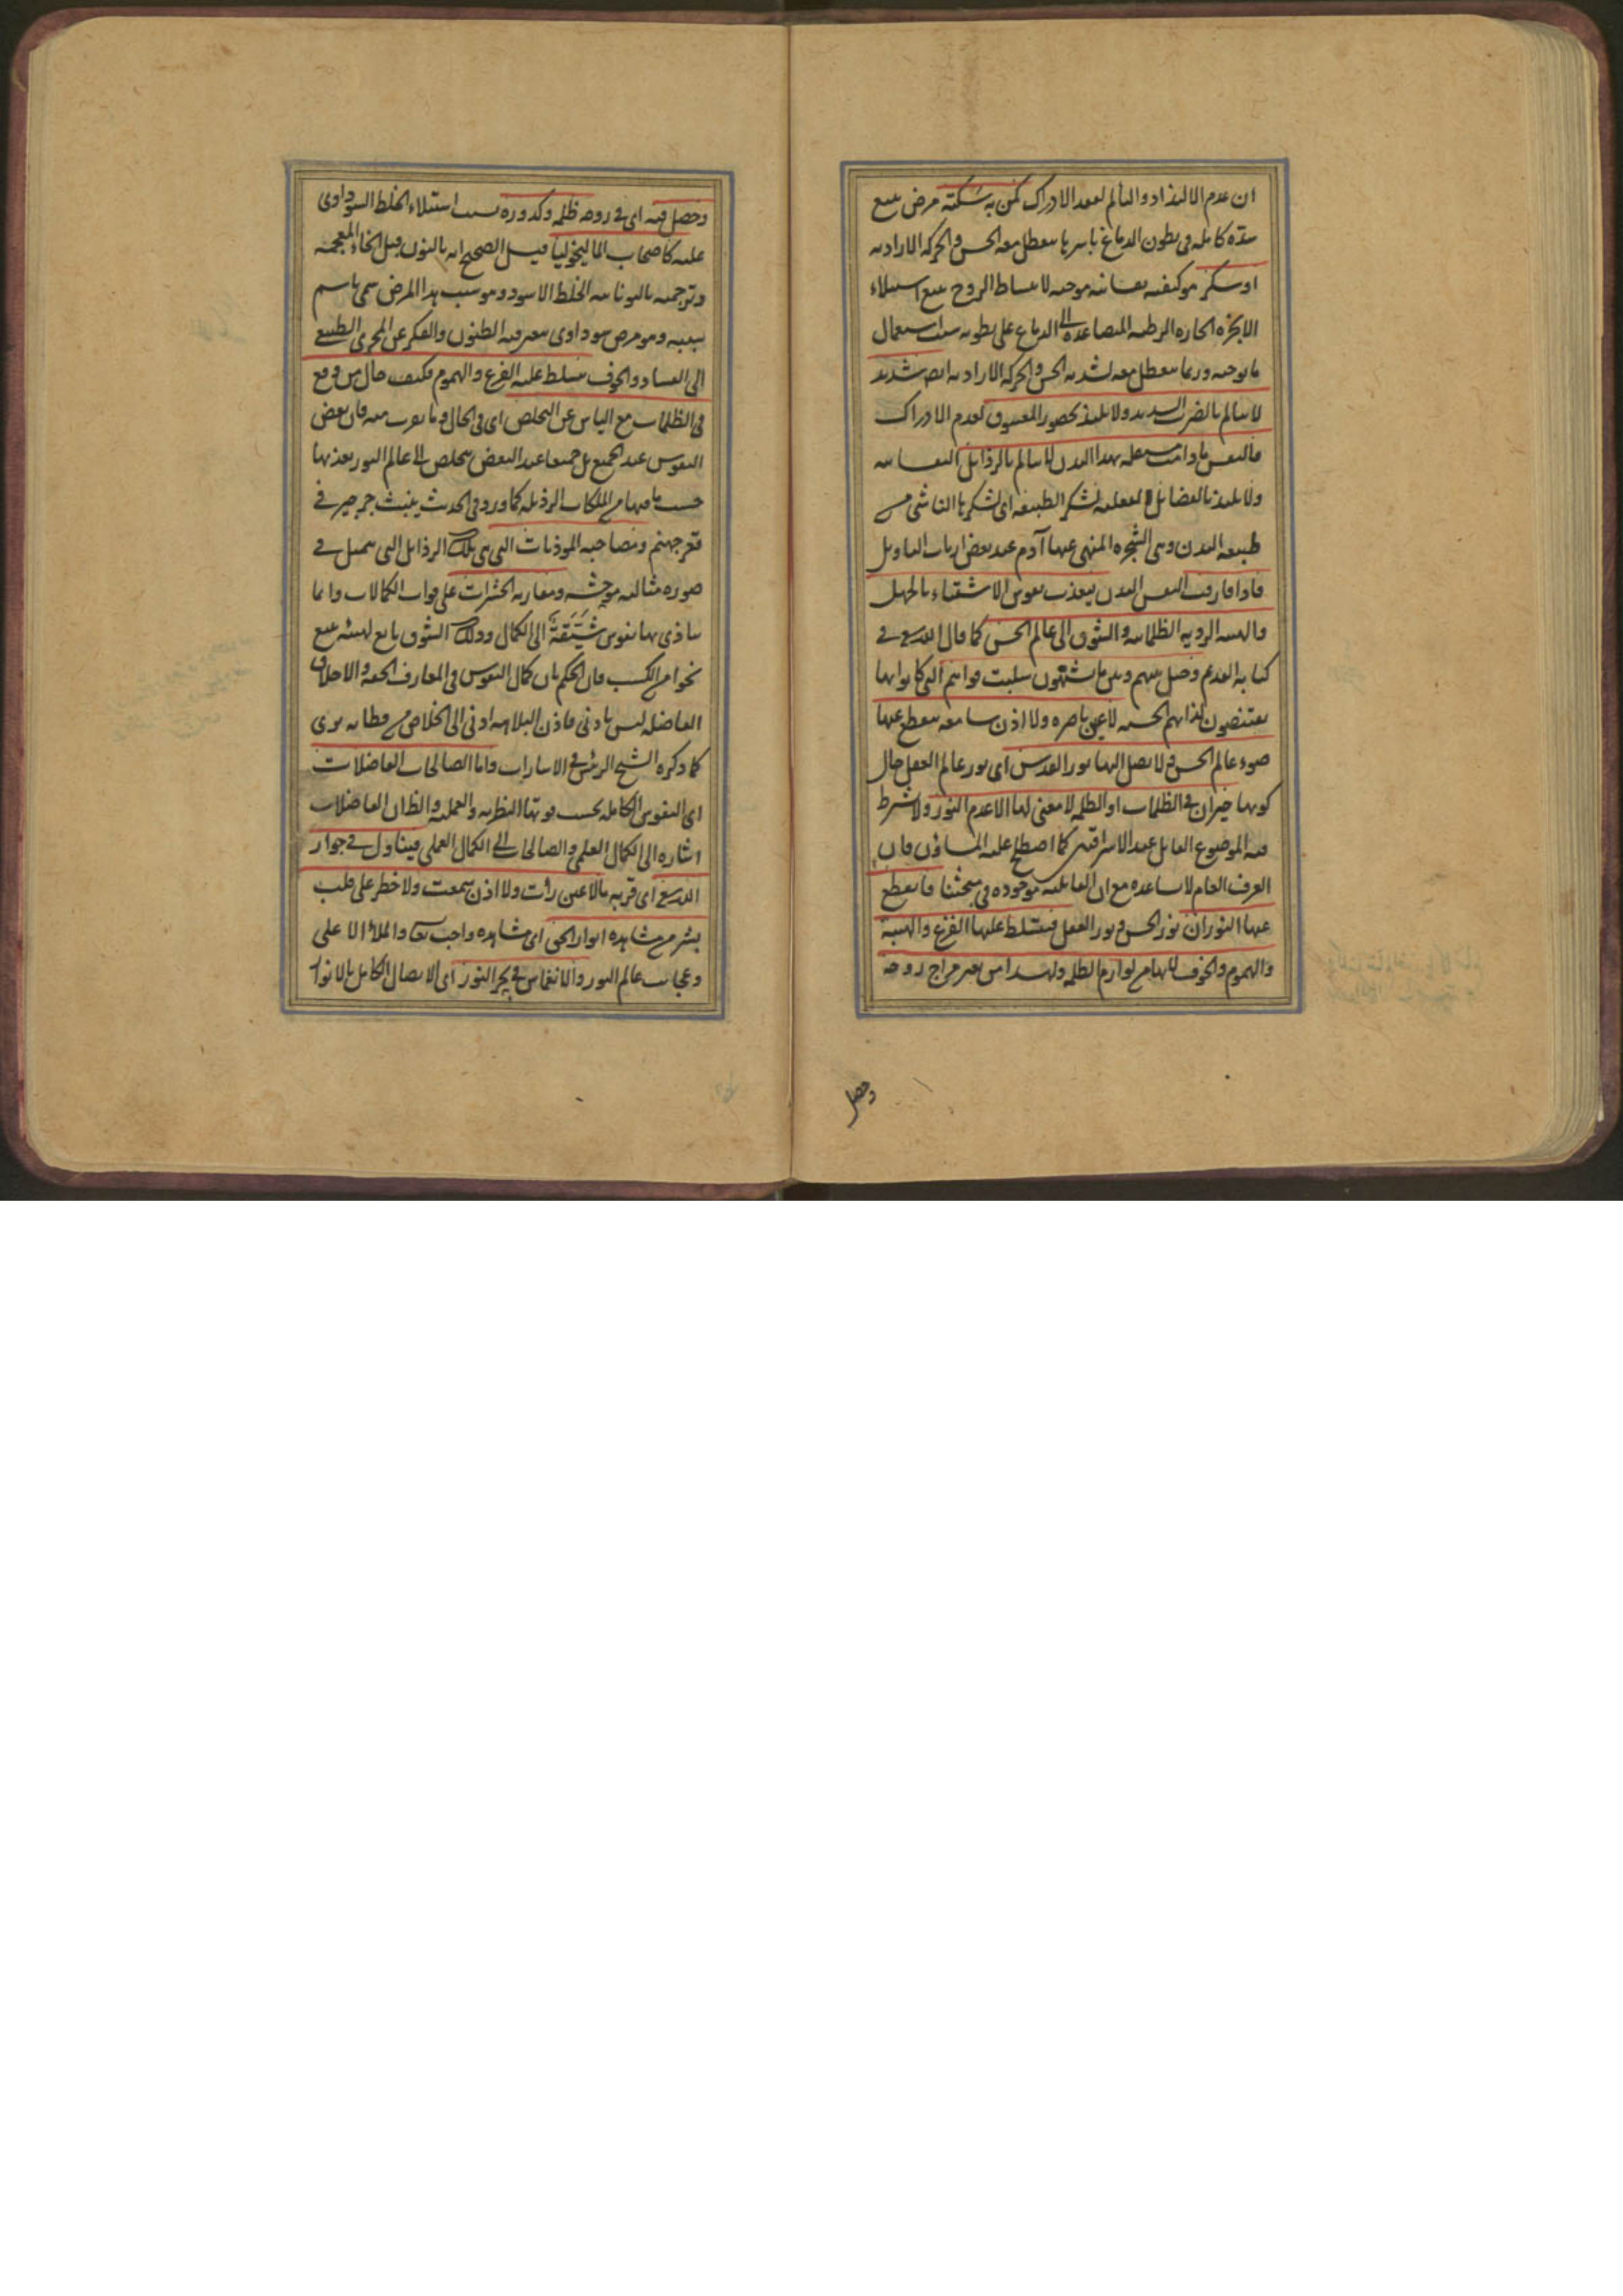 ان عدم الالتذاذ والتألم لفقد الادراك كمن به سكتة مرض يتبع
سدة كاملة في بطون الدماغ باسرها يتعطل معه الحس والحركة الارادية
او سكر هو كيفية نفسانية موجبة لانبساط الروح يتبع استيلاء
الابخرة الحارة الرطبة المتصاعدة الى الدماغ على بطونه بسبب استعمال
ما يوجبه وربما يتعطل معه لشدته الحس والحركة الارادية ايضا شديد
لا يتألم بالضرب الشديد ولا يلتذ بحضور المعشوق لعدم الادراك
فالنفس ما دامت مشتغلة بهذا البدن لا يتألم بالرذايل النفسانية
ولا يلتذ بالفضايل العقلية لسكر الطبيعة اى لسكرها الناشى من
طبيعة البدن وهى الشجرة المنهى عنها آدم عند بعض ارباب التاويل
فاذا فارقت النفس البدن يتعذب نفوس الاشقياء بالجهل
والهيئة الردية الظلمانية والشوق الى عالم الحس كما قال الله تع في
كتابه القديم وحيل بينهم وبين ما يشتهون سلبت قواهم التى كانوا بها
يقتنصون لذاتهم الحسية لا عين باصرة ولا اذن سامعة ينقطع عنها
ضوء عالم الحس ولا يصل اليها نور القدس اى نور عالم العقل حال
كونها حيران في الظلمات او الظلمة لا معنى لها الا عدم النور ولا يشترط
فيه الموضوع القابل عند الاشراقيين كما اصطلح عليه المشاؤن فان
العرف العام لا يساعده مع ان القابلية موجودة في مبحثنا فانقطع
عنها النوران نور الحس ونور العقل فيتسلط عليها الفزع والهيبة
والهموم والخوف لانها من لوازم الظلمة ولهذا من تغير مزاج روحه
وحصل
وحصل فيه اى في روحه ظلمة وكدورة بسبب استيلاء الخلط السوداوى
عليه كاصحاب الماليخوليا قيل الصحيح انه بالنون قبل الخاء المعجمة
وترجمته باليونانية الخلط الاسود وهو سبب هذا المرض سمى باسم
سببه وهو مرض سوداوى يتغير فيه الظنون والفكر عن المجرى الطبيعى
الى الفساد والخوف يتسلط عليه الفزع والهموم فكيف حال من وقع
في الظلمات مع الياس عن التخلص اى في الحال وما يقرب منه فان بعض
النفوس عند الجميع بل جميعا عند البعض يتخلص الى عالم النور بعذبها
حسب ما فيها من الملكات الرذيلة كما ورد في الحديث ينبت جرجير في
قعر جهنم ومصاحبة الموذيات التى هى تلك الرذايل التى يتمثل في
صورة مثالية موحشة ومقارنة الحشرات على فوات الكمالات وانما
يتاذى بها نفوس شيقة الى الكمال وذلك الشوق تابع لهيئة يتبع
نحوا من الكسب فان الحكم بان كمال النفوس في المعارف الحقة والاخلاق
الفاضلة ليس بادنى فاذن البلاهة ادنى الى الخلاص من فطانة بترى
كما ذكره الشيخ الرئيس في الاشارات واما الصالحات الفاضلات
اى النفوس الكاملة بحسب قوتها النظرية والعملية والظان الفاضلات
اشارة الى الكمال العلمى والصالحات الى الكمال العملى فيتناول في جوار
الله تع اى قربه ما لا عين رأت ولا اذن سمعت ولا خطر على قلب
بشر من مشاهدة انوار الحق اى مشاهدة واجب تعا والملأ الاعلى
وعجايب عالم النور والانغماس في بحر النور اى الاتصال الكامل بالانوار